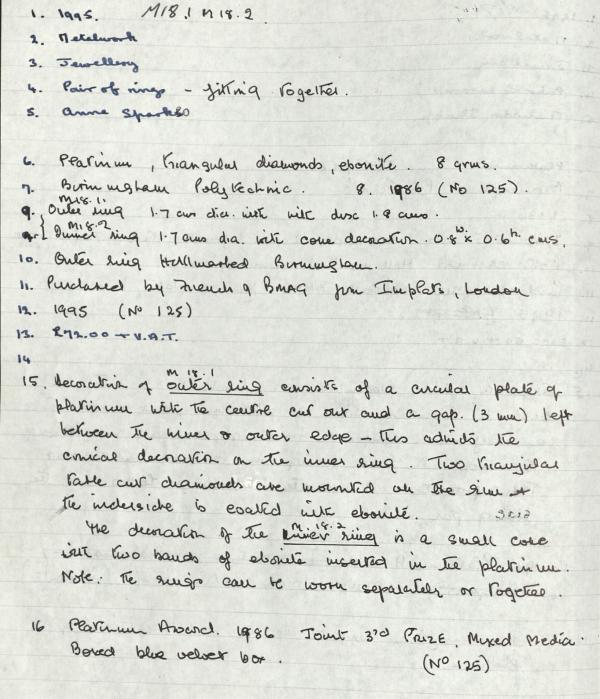 1. 1995. M18.1 M18.2
2. Metalwork
3. Jewellery
4. Pair of rings - fitting together.
5. Anne Sparks
6. Platinum, triangular diamonds, ebonite. 8 grms.
7. Birmingham Polytechnic. 8. 1986 (No 125).
M18.1:
9. Outer ring 1.7 cms dia. with disc 1.8 cms.
M18.2
9. Inner ring 1.7 cms dia. with cone decoration. 0.8w. x 0.6h cms.
10. Outer ring Hallmarked Birmingham.
11. Purchased by of BMAG from Implats, London
12. 1995 (No 125)
13. £72.00 + V.A.T.
14
M 18.1
15. Decoration of outer ring consists of a circular plate of
platinum with the centre cut out and a gap. (3 mm) left
between the inner & outer edge - this admits the
conical decoration on the inner ring. Two triangular
table cut diamonds are mounted on the rim +
the underside is coated with ebonite.
M.18.2
The decoration of the inner ring is a small cone
with two bands of ebonite inserted in the platinum.
Note: the rings can be worn separately or together.
16 Platinum Award. 1986 Joint 3rd PRIZE, Mixed Media.
Boxed blue velvet box. (No 125)